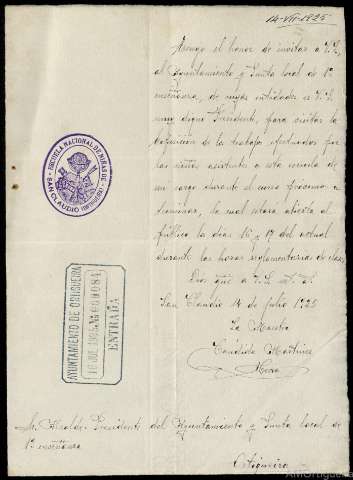 14-VII-1925
Tengo el honor de invitar a V.S,
al Ayuntamiento y Junta local de 1ª
enseñanza, de cuyas entidades es V.S.
muy digno Presidente, para visitar la
Exposición de los trabajos efectuados por
las niñas asistentes a esta escuela de
mi cargo durante el curso próximo a
terminar, la cual estará abierta al
público los días 16 y 17 del actual
durante las horas reglamentarias de clase.
Dios gue. a V.S. m. a.
San Claudio 14 de julio 1925
La Maestra
Cándida Martínez
ESCUELA NACIONAL DE NIÑAS DE
SAN CLAUDIO (ORTIGUEIRA)
AYUNTAMIENTO DE ORTIGUEIRA
16 JUL. 1925
ENTRADA
Sr. Alcalde-Presidente del Ayuntamiento y Junta local de
1ª enseñanza
Ortigueira
AMOrtigueira